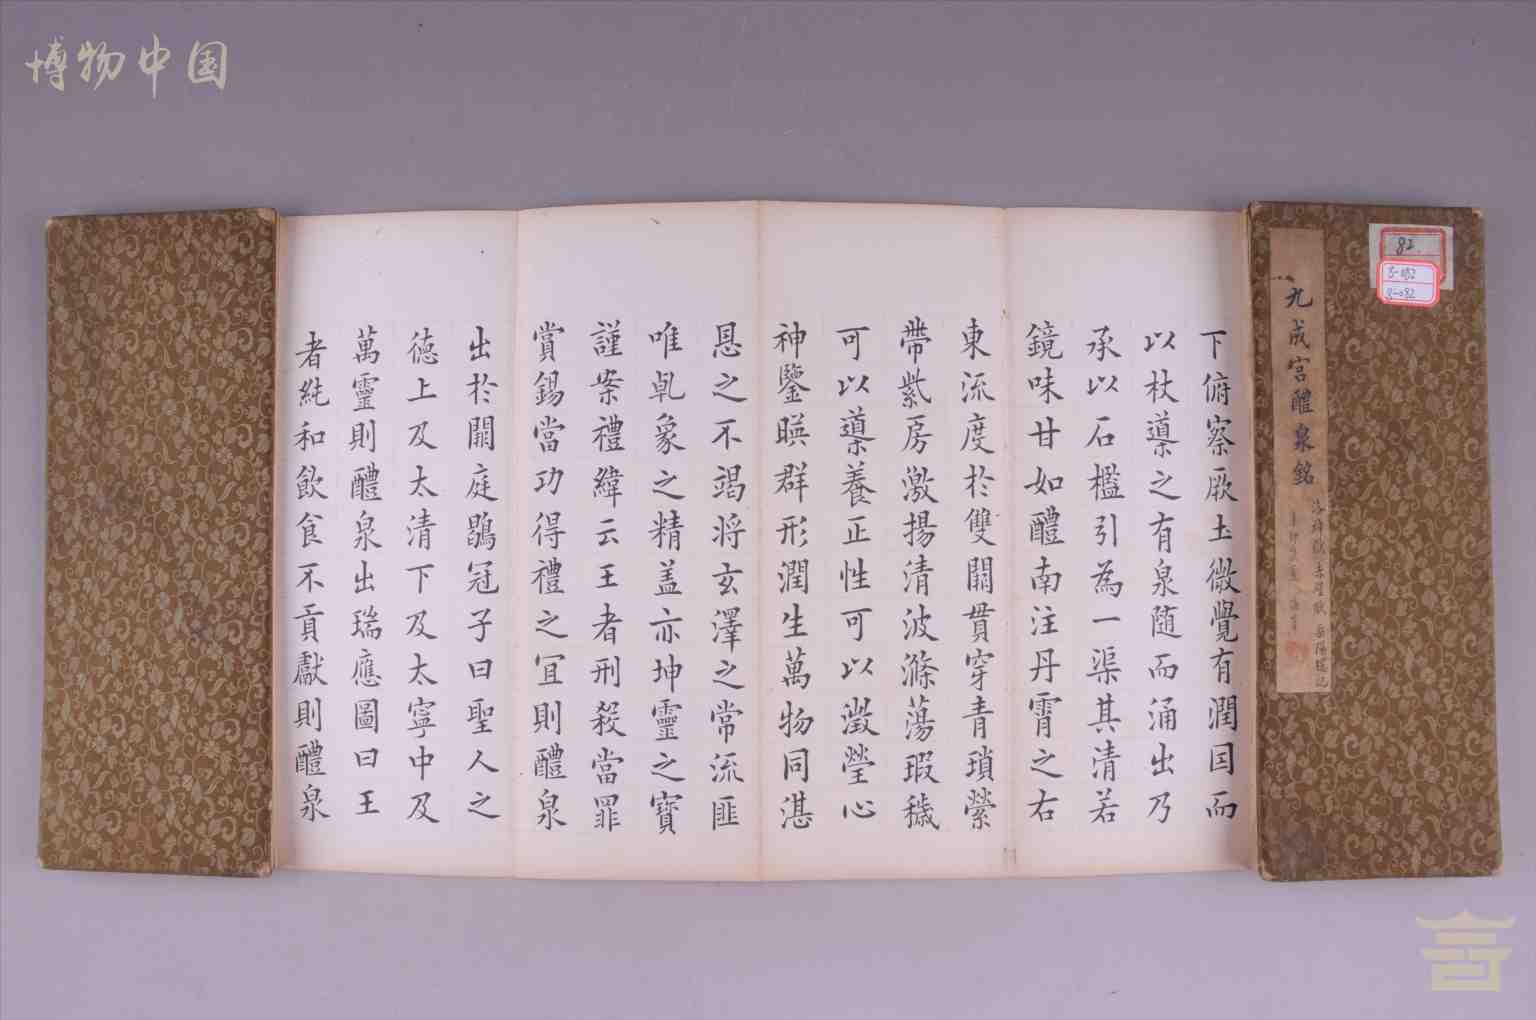 博物中国
82
3-082
3-082
九成宫醴泉銘
洛神賦 赤壁賦 岳陽樓記
下俯察厥土微覺有潤国而
以杖導之有泉随而涌出乃
承以石檻引為一渠其清若
鏡味甘如醴南注丹霄之右
東流度於雙闕貫穿青瑣縈
帶紫房激揚清波滌蕩瑕穢
可以導養正性可以澂瑩心
神鑒暎群形潤生萬物同湛
恩之不竭将玄澤之常流匪
唯乹象之精盖亦坤靈之寶
謹案禮緯云王者刑殺當罪
賞錫當功得禮之宜則醴泉
出於闕庭鶡冠子曰聖人之
徳上及太清下及太寧中及
萬靈則醴泉出瑞應圖曰王
者純和飲食不貢獻則醴泉